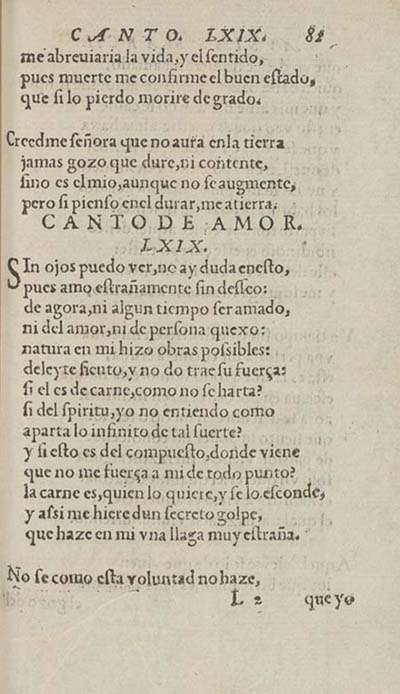 CANTO. LXIX. 82
me abreuiaria la vida,y el ſentido,
pues muerte me confirme el buen eſtado,
que ſi lo pierdo morire de grado.
Creedme ſeñora que no aura enla tierra
jamas gozo que dure,ni contente,
ſino es el mio,aunque no ſe augmente,
pero ſi pienſo enel durar,me atierra.
CANTO DE AMOR.
LXIX.
SIn ojos puedo ver,no ay duda eneſto,
pues amo eſtrañamente ſin deſſeo:
de agora,ni algun tiempo ſer amado,
ni del amor,ni de perſona quexo:
natura en mi hizo obras poſsibles:
deleyte ſiento,y no do trae ſu fuerça:
ſi el es de carne,como no ſe harta?
ſi del ſpiritu,yo no entiendo como
aparta lo infinito de tal ſuerte?
y ſi eſto es del compueſto,donde viene
que no me fuerça a mi de todo punto?
la carne es,quien lo quiere,y ſe lo eſconde,
y aſsi me hiere dun ſecreto golpe,
que haze en mi vna llaga muy eſtraña.
No ſe como eſta voluntad no haze,
L 2 que yo